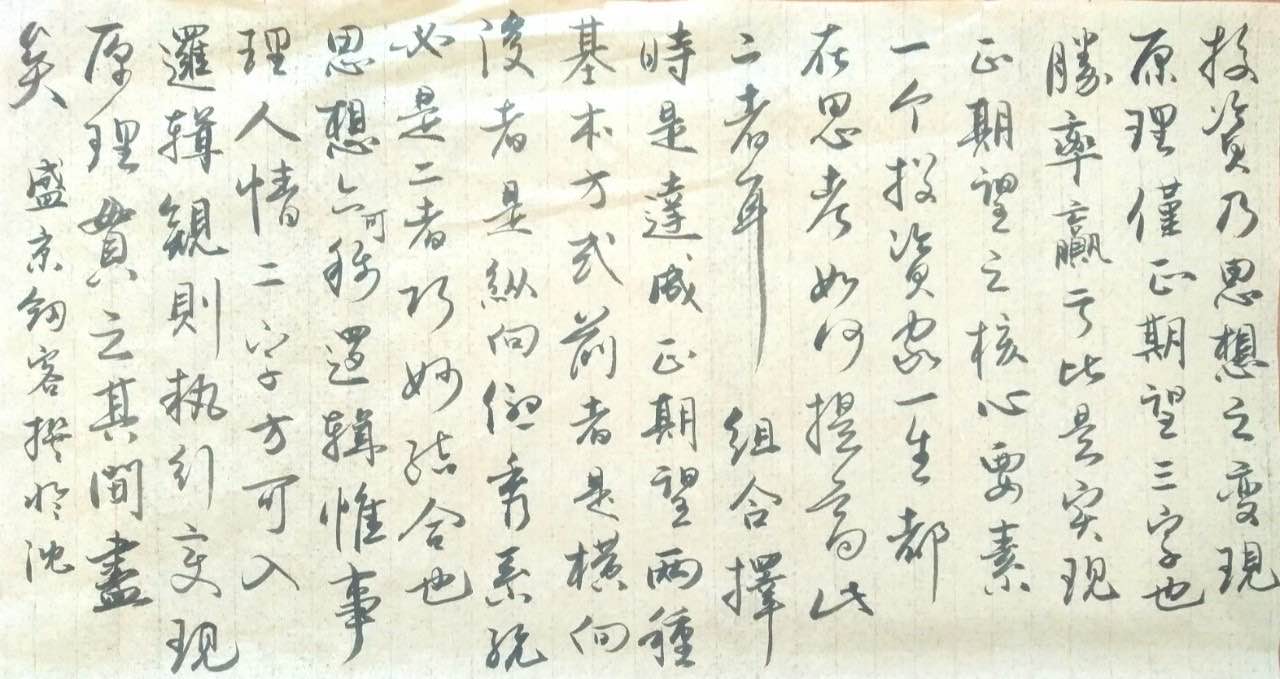 投資乃思想之變現
原理僅正期望三字也
勝率贏亏比是实现
正期望之核心要素
一个投資家一生都
在思考如何提高此
二者耳 組合擇
時是達成正期望兩種
基本方式前者是橫向
後者是縱向優秀系統
必是二者巧妙結合也
思想亦可称邏輯惟事
理人情二字方可入
邏輯規則執行变现
原理貫之其間盡
矣 盛京釰客撰於沈